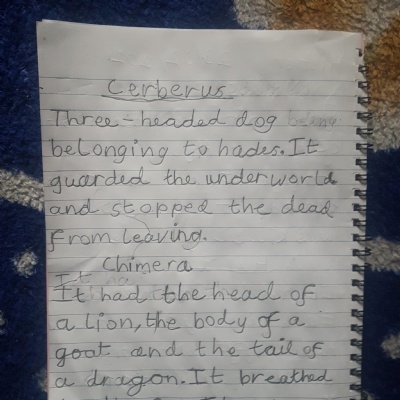 Cerberus
Three-headed dog being
belonging to hades. It
guarded the underworld
and stopped the dead
from leaving.
Chimera
It ha
It had the head of
a lion, the body of a
goat and the tail of
a dragon. It breathed